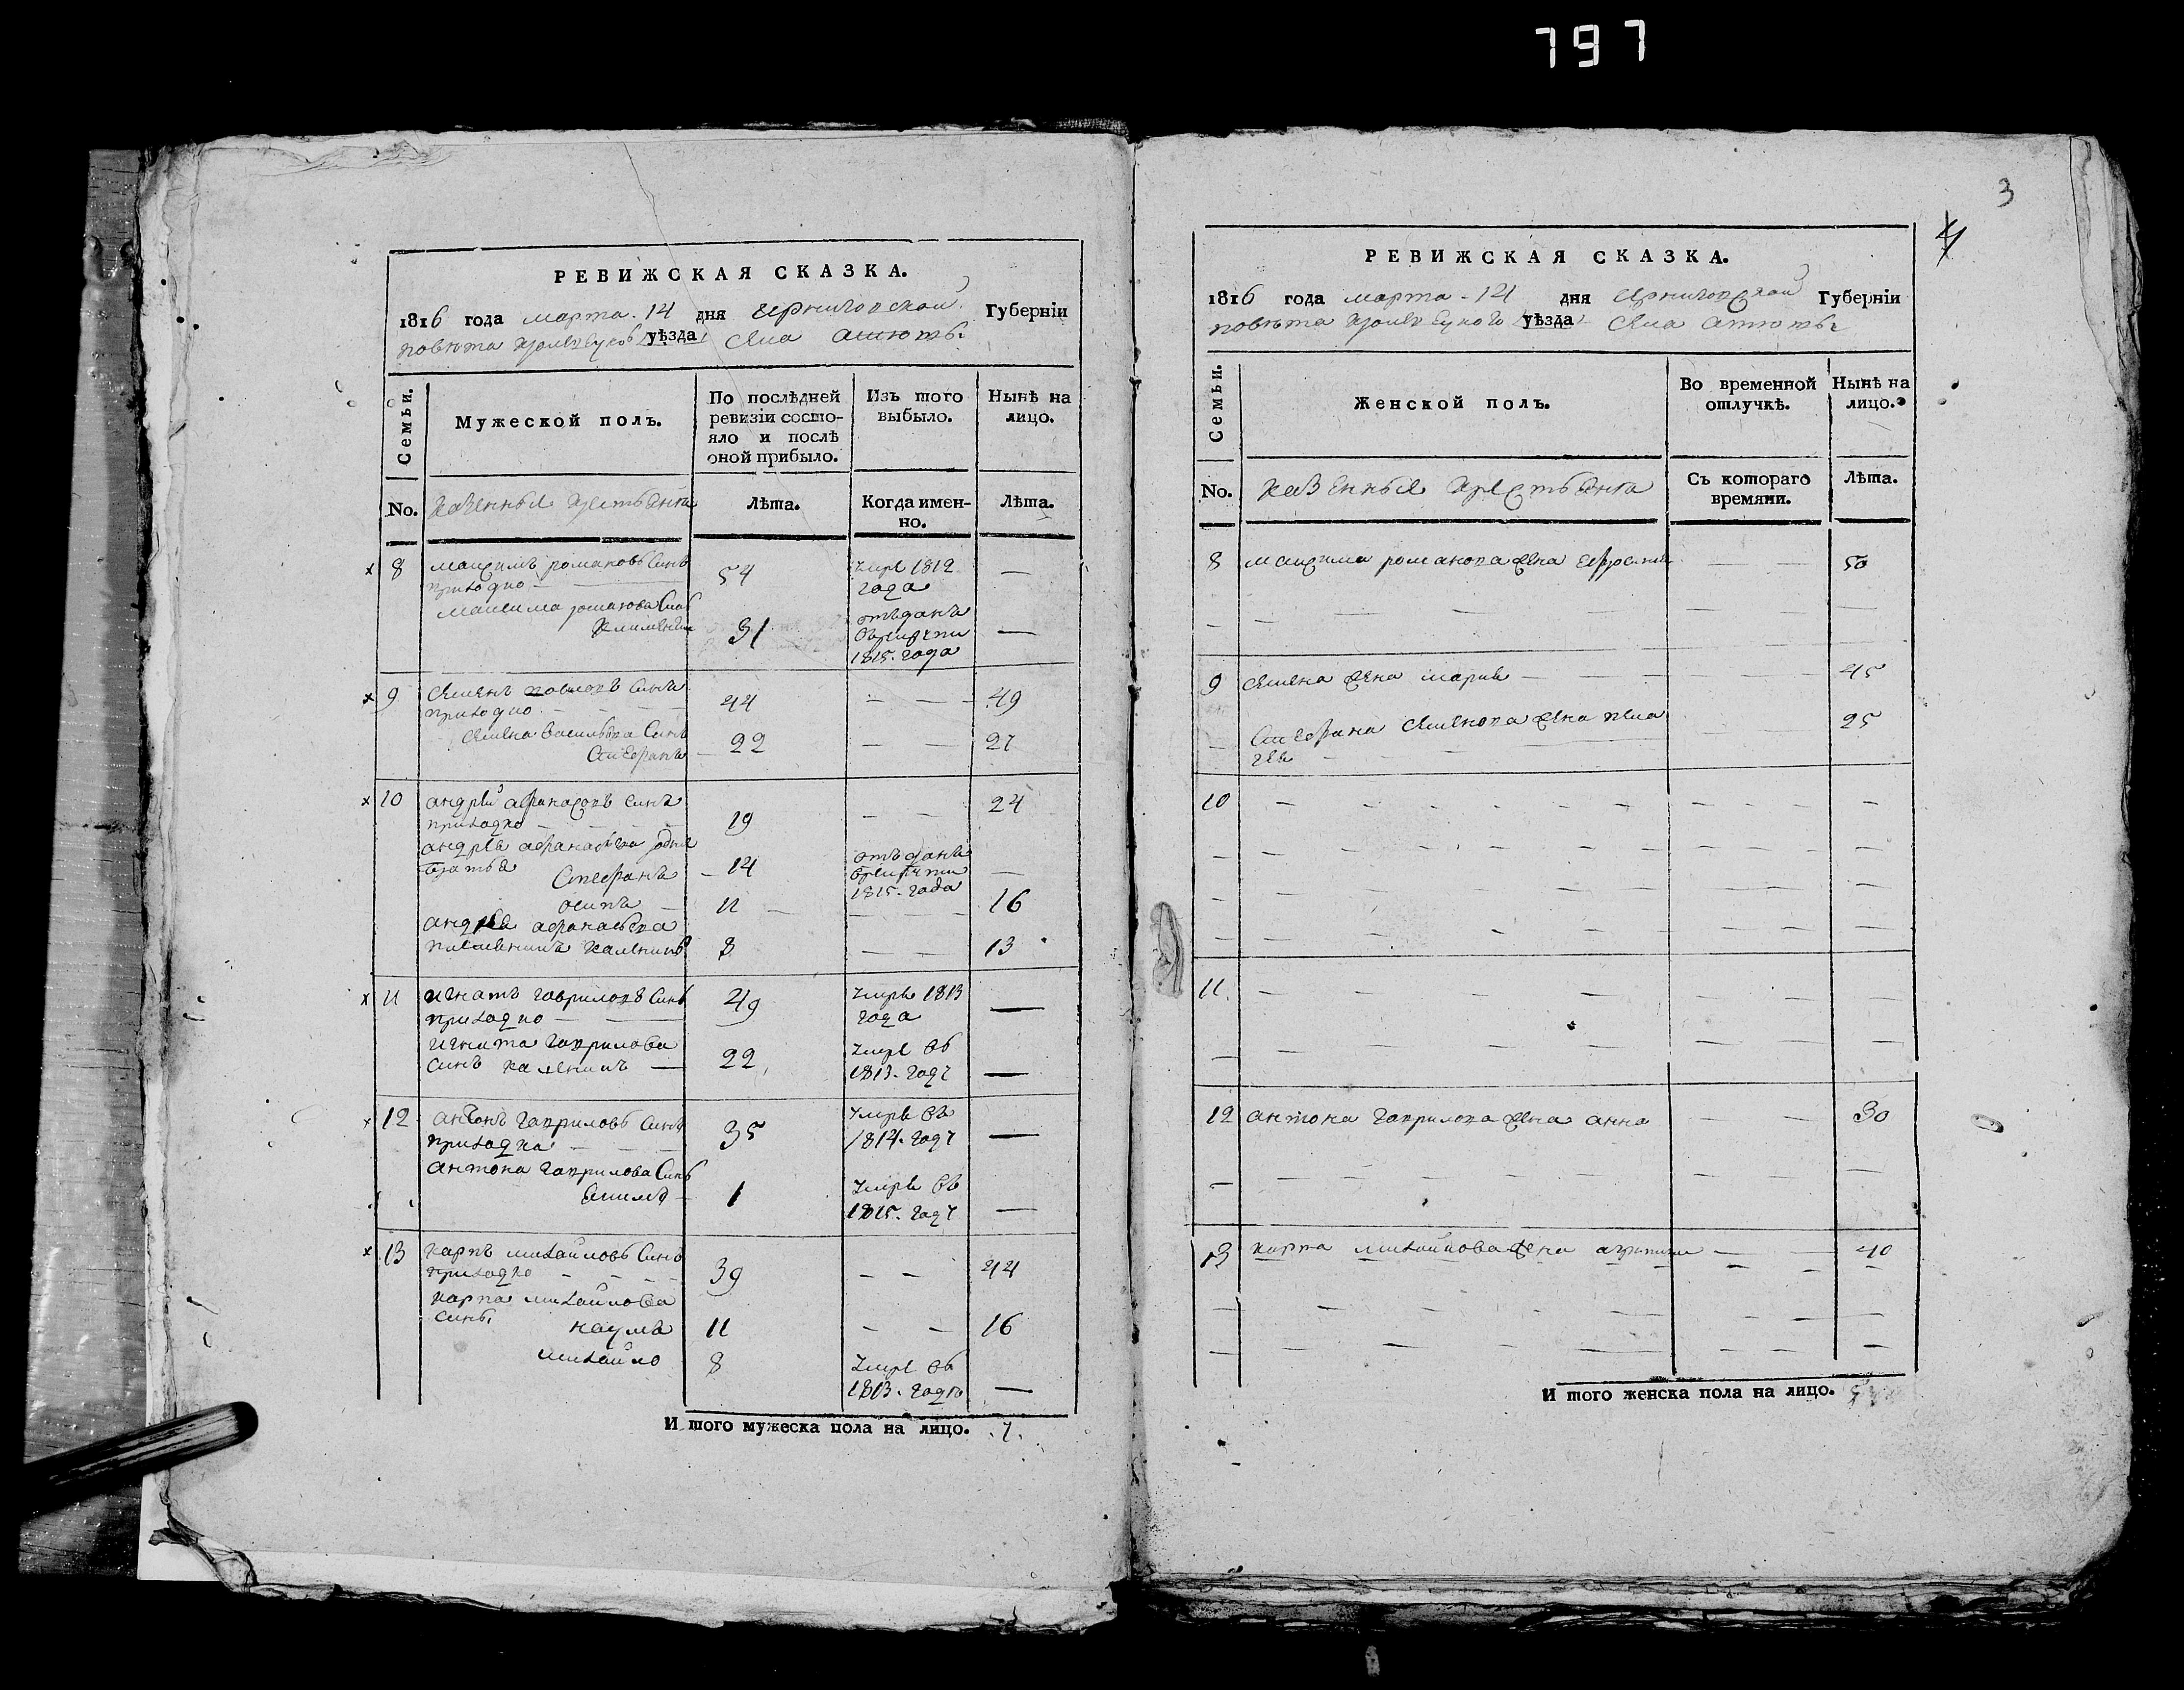 797
РЕВИЖСКАЯ СКАЗКА.
1816 года марта 14 дня Черниговской Губерніи
повѣта Кролевецкого уѣзда Села Атюшы
Семьи.
Мужеской полъ.
По послѣдней ревизіи состо-
яло и послѣ оной прибыло.
Изъ того выбыло.
Ныне на лицо.
No. Казенные крестьяне
Лѣта.
Когда имен-
но.
Лѣта.
8 Максимъ романовъ Синъ 54 Умре 1812 —
приходко — года
Максима романова Синъ отъданъ
Климентий 31 в рекруты —
1815. года
9 Семенъ Синъ 44 — — 49
приходко
Семена васильева Синъ
Стефанъ 22 — — 27
10 андрей афанасовъ синъ 19 — — 24
приходко
андрея афанасьева родные
братья Стефанъ 14 отъданъ в рекруты 1815. года —
осипъ 11 — 16
андрея афанасьева
племенникъ каленикъ 8 — — 13
11 игнатъ гавриловъ Синъ 49 Умре 1813 —
приходко — года
игната гаврилова
синъ каленикъ — 22 Умре въ 1813. году —
12 антонъ гавриловъ Синъ 35 Умре въ
приходко 1814. году —
антона гаврилова Синъ
Екимъ 1 Умре въ 1815. году —
13 карпъ михайловъ Синъ 39 — — 44
приходко
карпа михайлова
сины наумъ 11 — — 16
михайло 8 Умре въ
1813. году —
И того мужеска пола на лицо. 7.
3
4
РЕВИЖСКАЯ СКАЗКА.
1816 года марта 14 дня Черниговской Губерніи
повѣта Кролевецкого уѣзда Села Атюшы
Семьи.
Женской полъ.
Во временной отлучкѣ.
Ныне на лицо.
No. Казенные крестьяне
Съ котораго времяни.
Лѣта.
8 максима романова жена Ефросиния — — 50
9 семена жена мария — — 45
Стефана Семенова жена пела 25
гея
10 — — —
11. — — —
12 антона гаврилова жена анна — — 30
13 карпа михайлова жена агрипина — 40
И того женска пола на лицо. 5